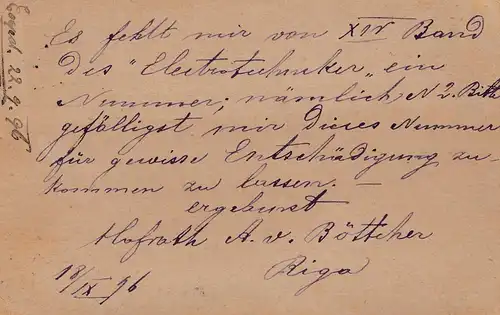 Es fehlt mir von XIV Band
des "Electrotechniker" ein
Nummer; nämlich N 2. Bitte
gefälligst mir dieses Nummer
für gewisse Entschädigung zu-
kommen zu lassen. —
ergebenst
Hofrath A. v. Böttcher
Riga
18/IX 96
22.9.96